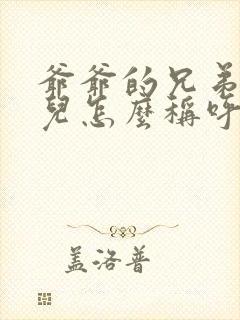 爺爺的兄弟
兒怎麼稱呼
盖洛普